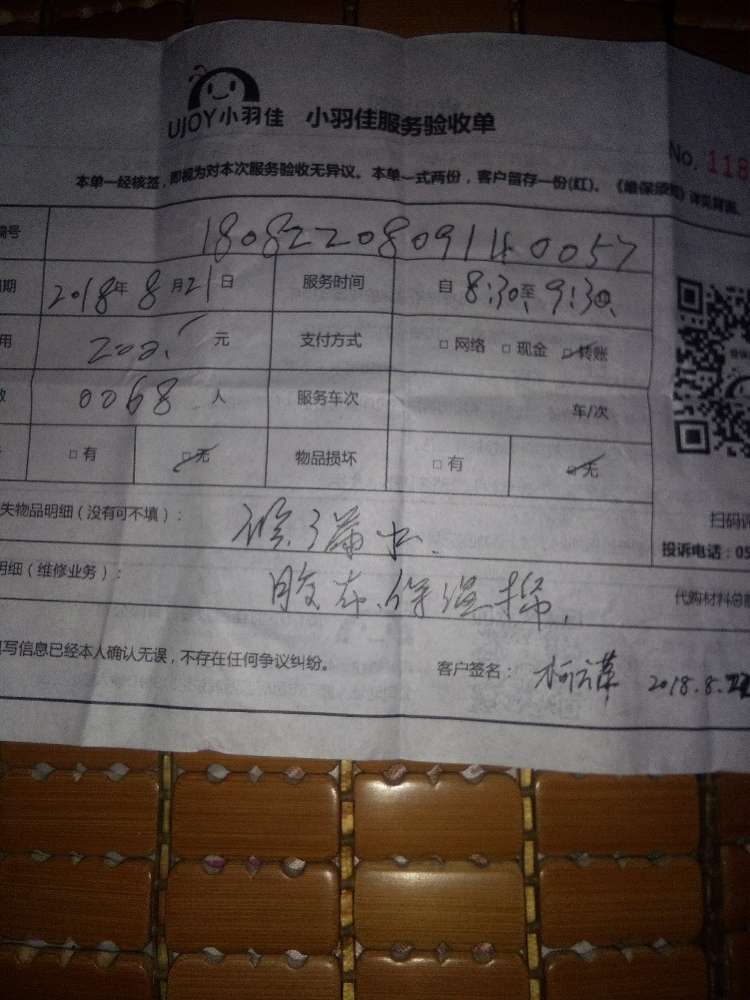 UJOY小羽佳 小羽佳服务验收单
No. 118
本单一经核签，即视为对本次服务验收无异议。本单一式两份，客户留存一份(红)。《维保须知》详见背面
编号 1808220809140057
期 2018年8月21日 服务时间 自8:30至9:30
用 200. 元 支付方式 □网络 □现金 □转账
数 0068 人 服务车次 车/次
□有 □无 物品损坏 □有 □无
失物品明细（没有可不填）：
明细（维修业务）： 胶布.保温棉.
扫码评
投诉电话：05
代购材料总
填写信息已经本人确认无误，不存在任何争议纠纷。 客户签名： 2018.8.